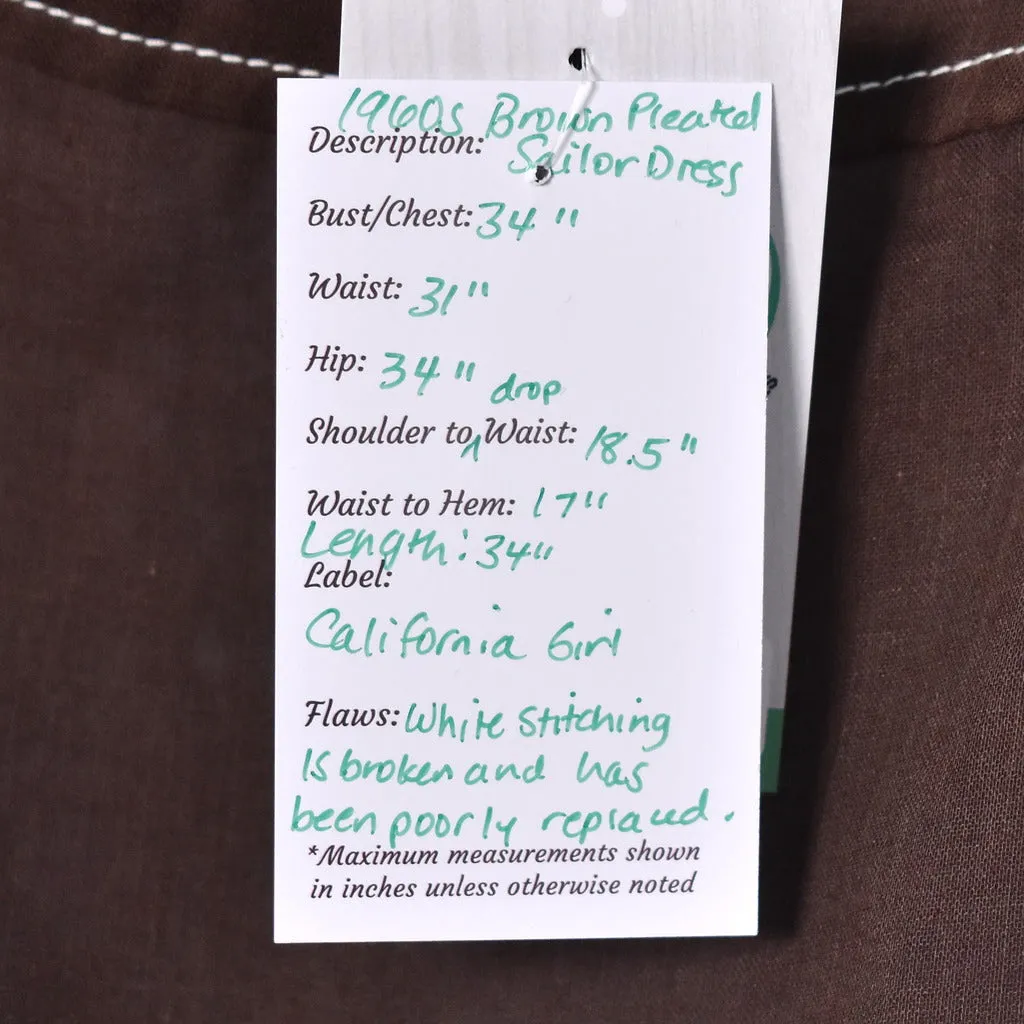 1960s Brown Pleated
Description: Sailor Dress
Bust/Chest: 34"
Waist: 31"
Hip: 34"
drop
Shoulder to ^ Waist: 18.5"
Waist to Hem: 17"
Length: 34"
Label:
California Girl
Flaws: White Stitching
Is broken and has
been poorly replaced.
*Maximum measurements shown
in inches unless otherwise noted